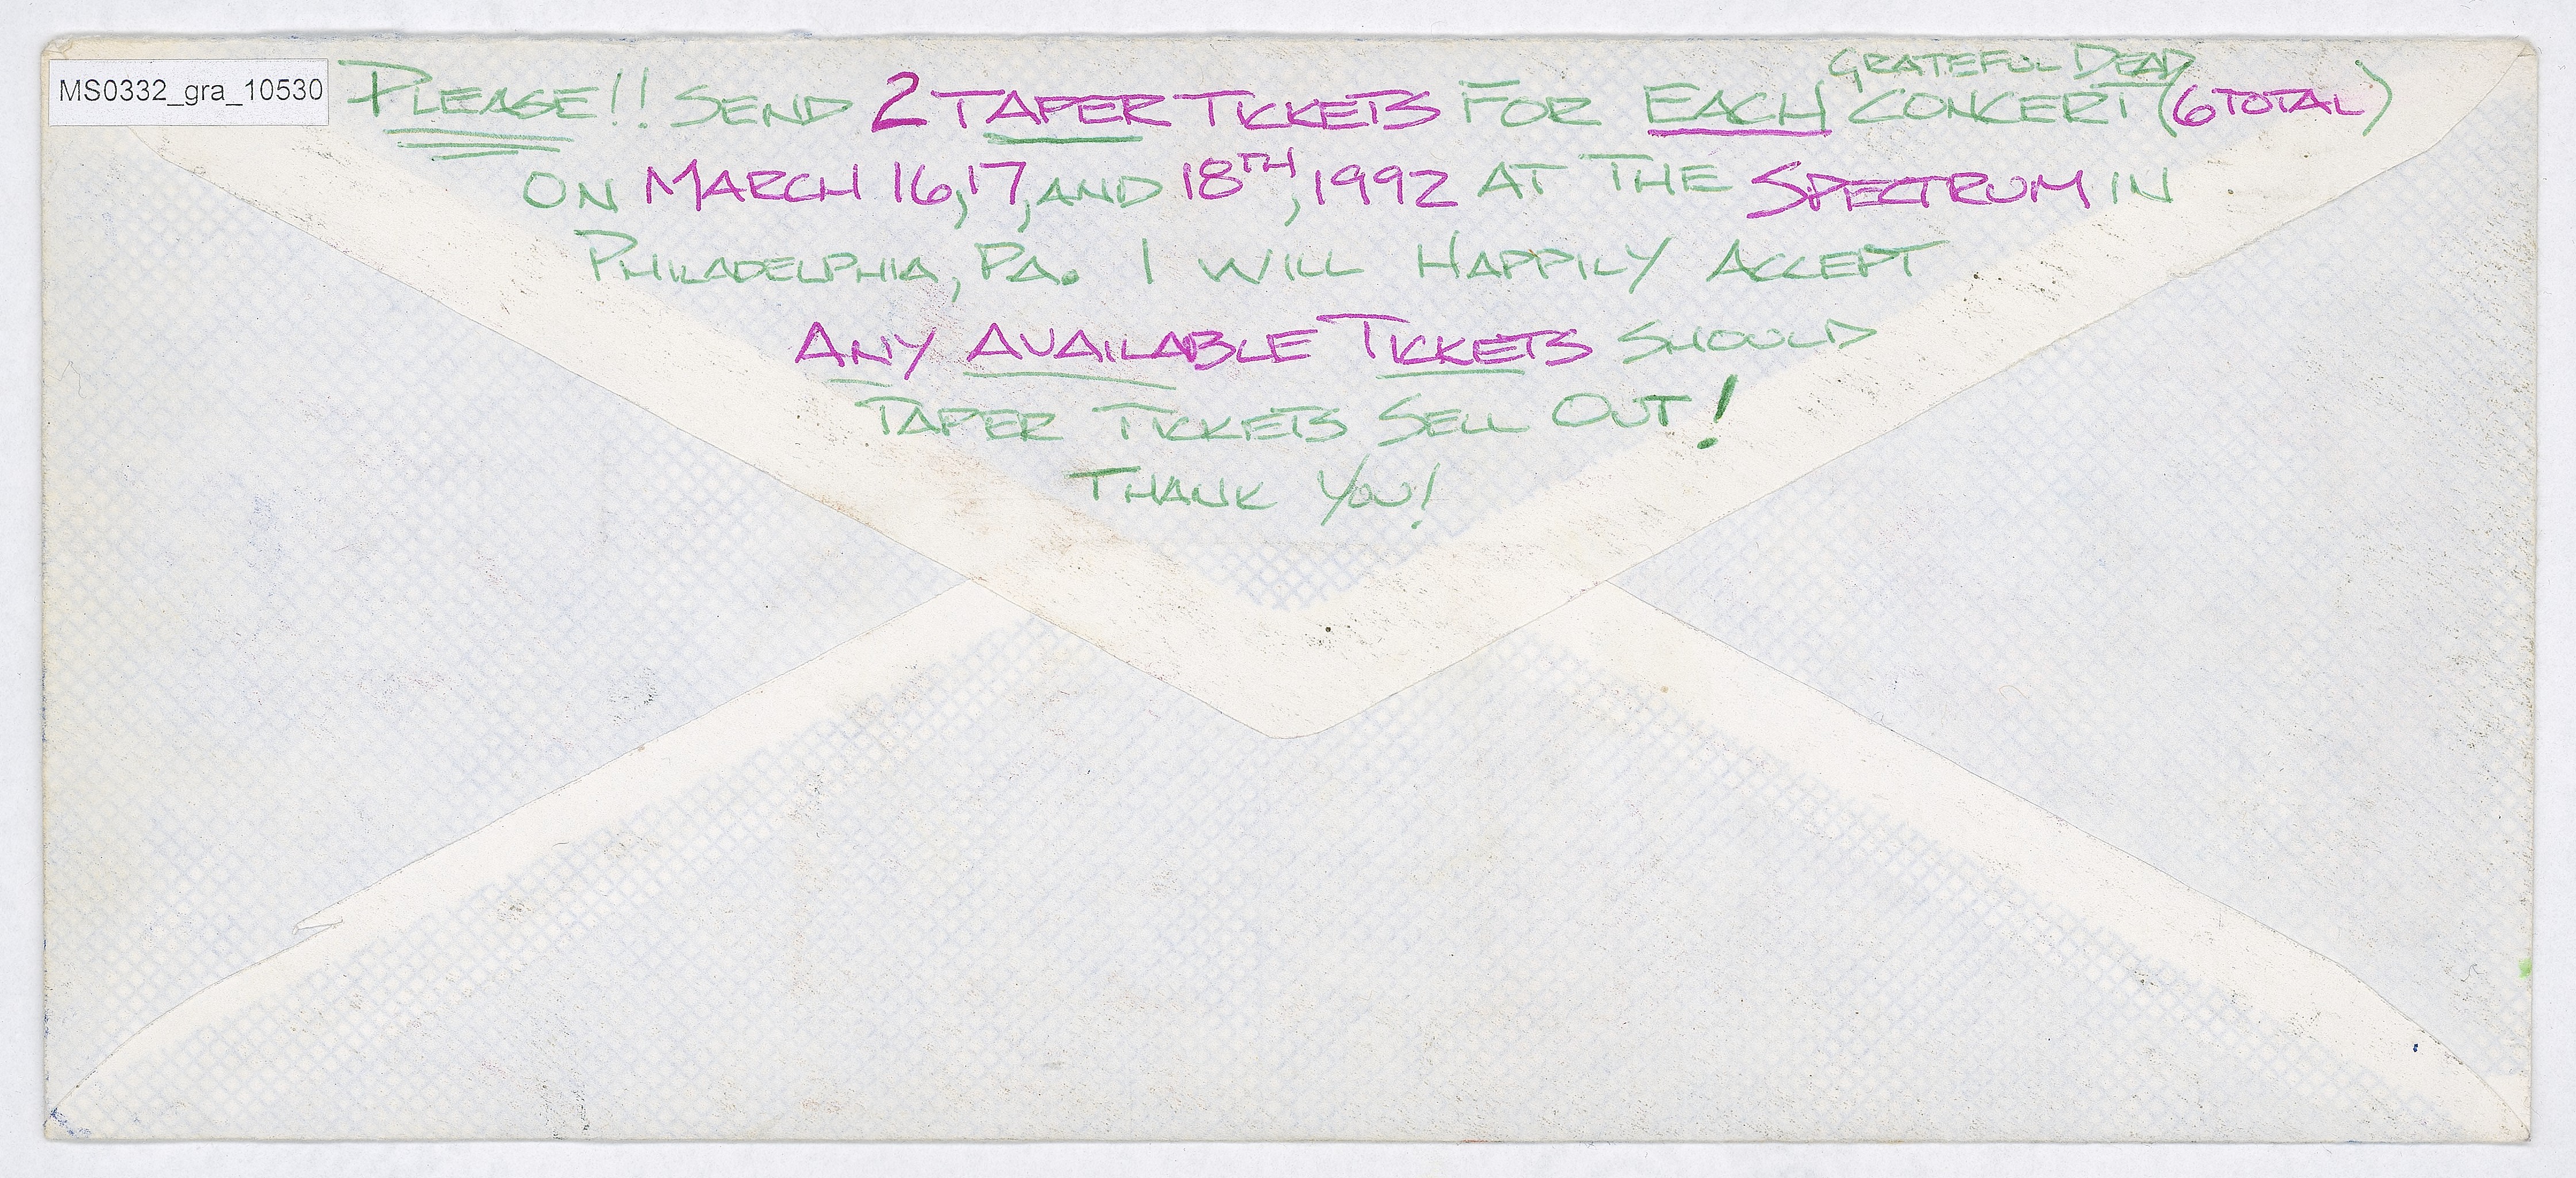 MS0332_gra_10530
GRATEFUL DEAD
PLEASE!! SEND 2 TAPER TICKETS FOR EACH CONCERT (6 TOTAL)
ON MARCH 16, 17, AND 18TH, 1992 AT THE SPECTRUM IN
PHILADELPHIA, PA. I WILL HAPPILY ACCEPT
ANY AVAILABLE TICKETS SHOULD
TAPER TICKETS SELL OUT!
THANK YOU!